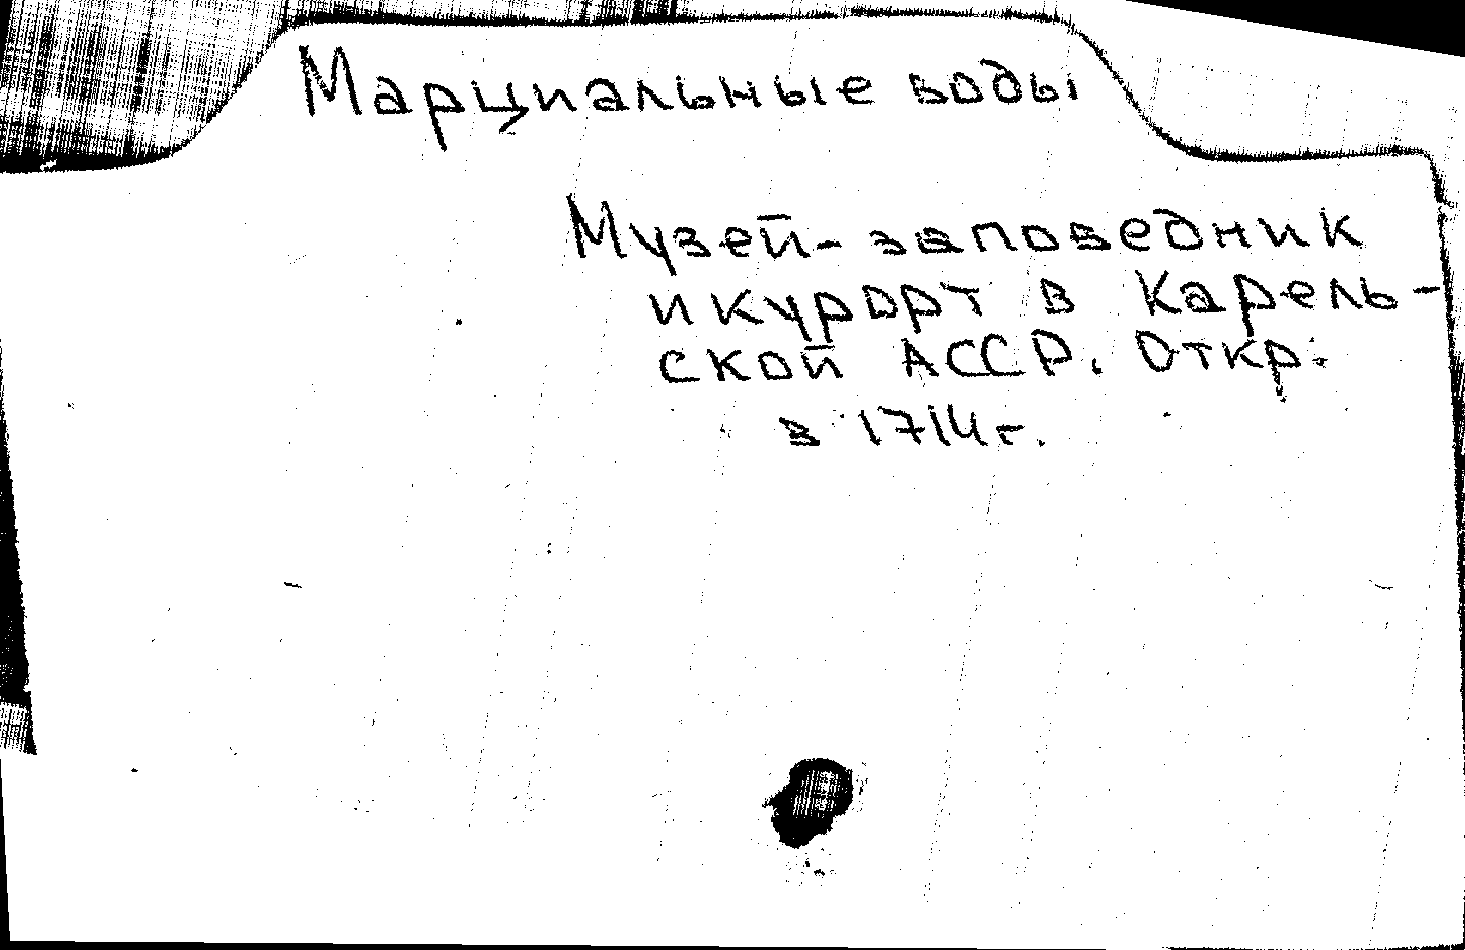 Марциальные воды
Музей-заповедник
и курорт в Карель-
ской АССР. Откр.
в 1714г.